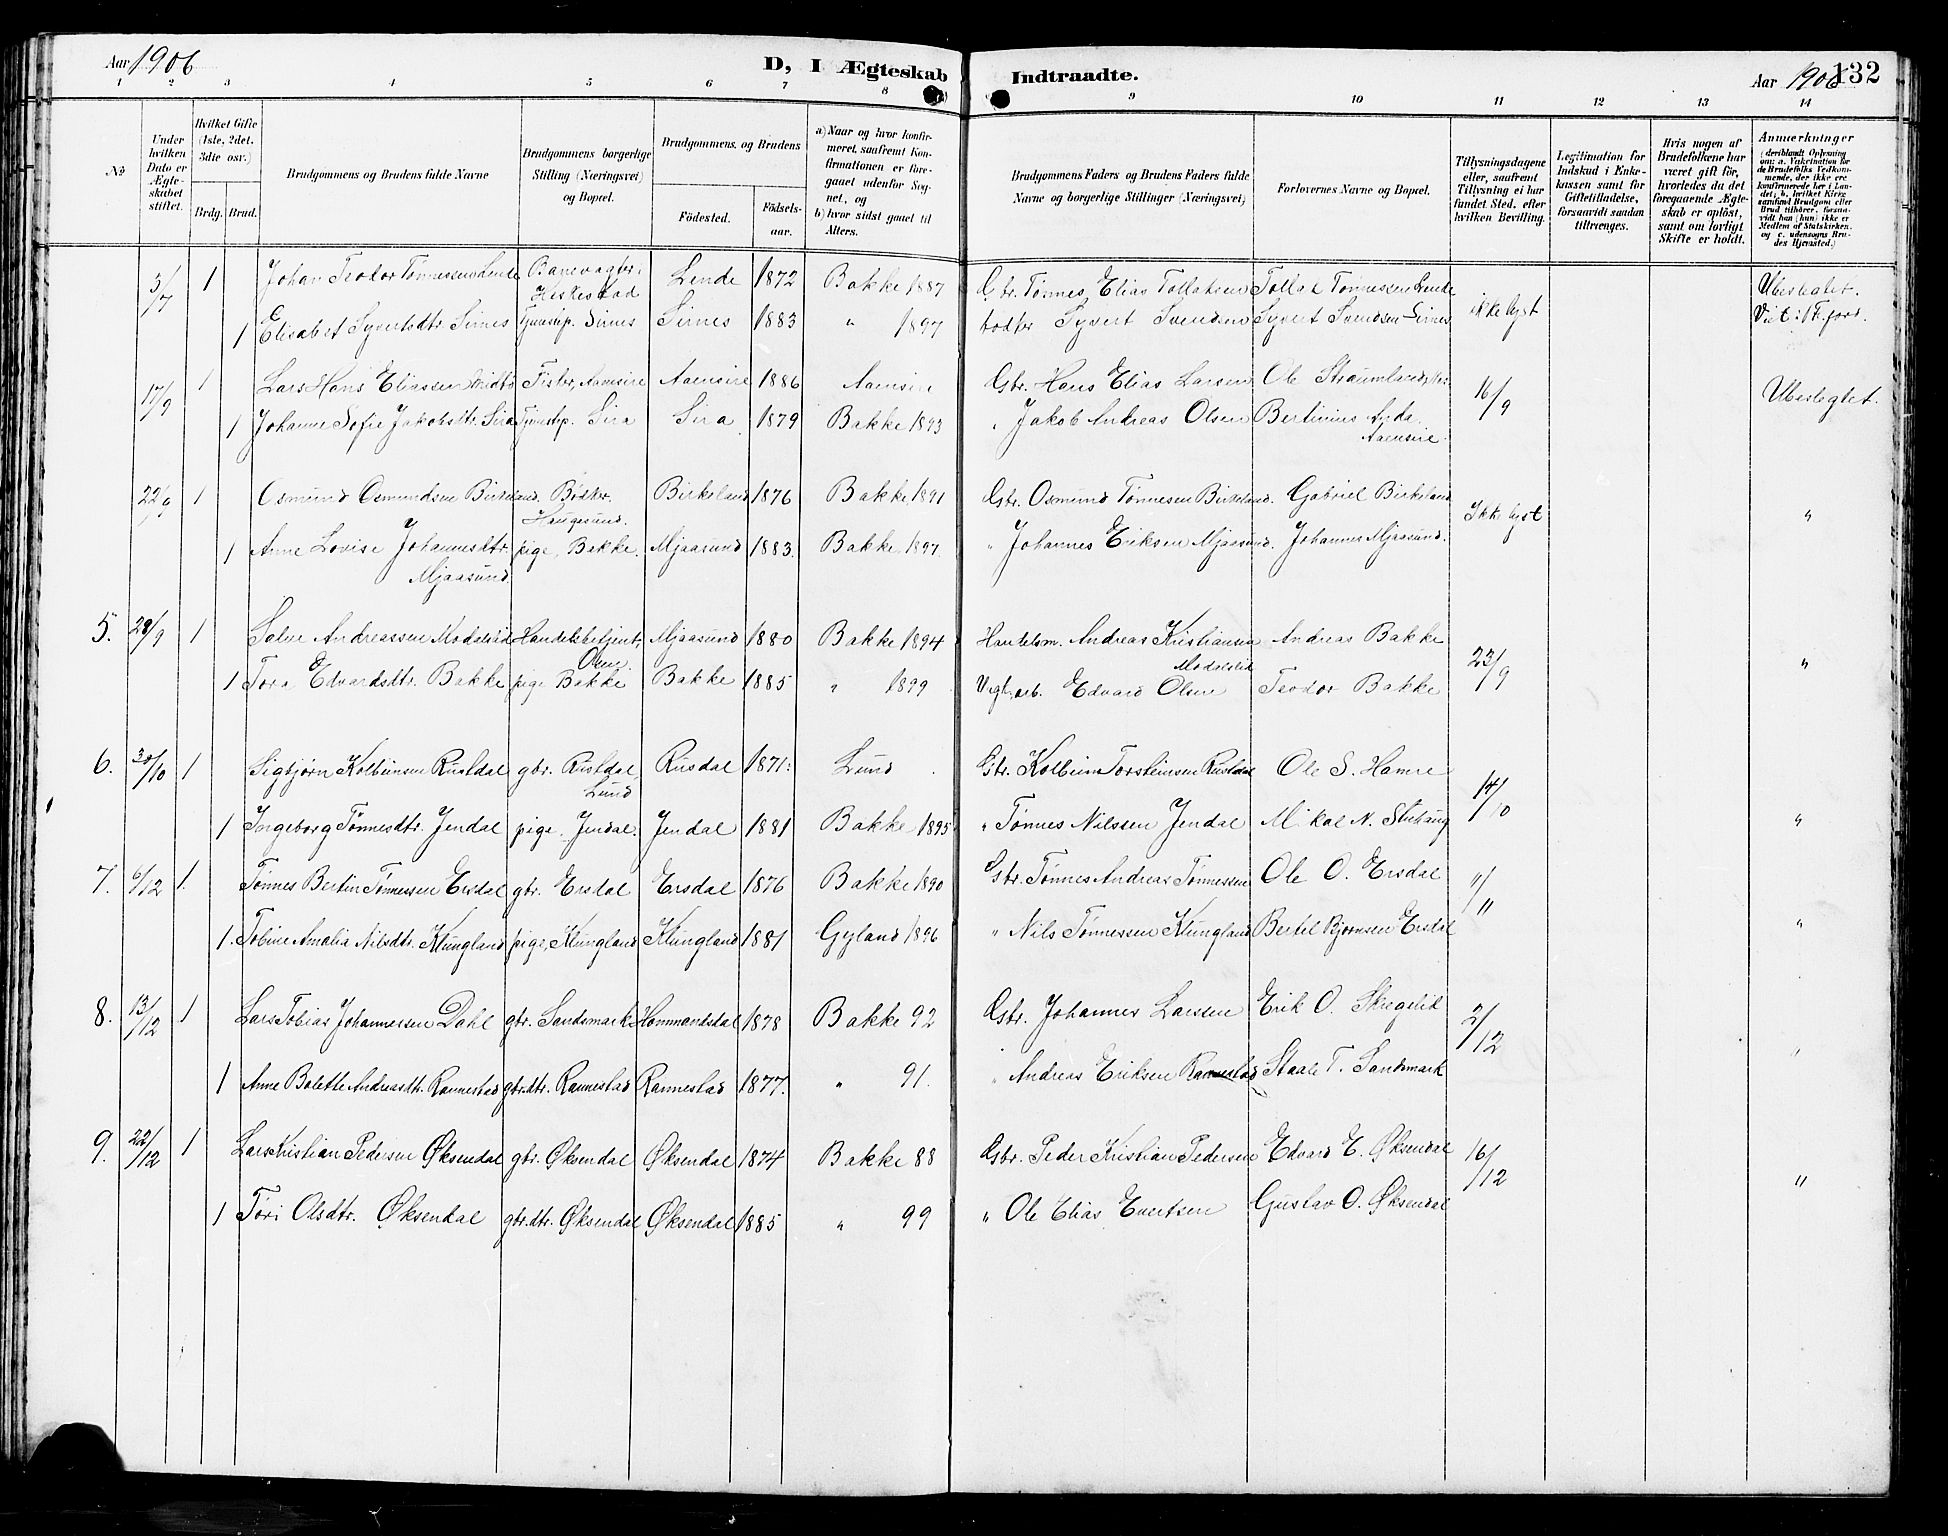 Aar 1906 D, I Ægteskab Indtraadte. Aar 1906 132
1 2 3 4 5 6 7 8 9 10 11 12 13 14
No
Under hvilken Dato er Ægteskabet stiftet.
Hvilket Gifte (1ste, 2det, 3die osv.)
Brdg. Brud.
Brudgommens og Brudens fulde Navne
Brudgommens borgerlige Stilling (Næringsvei) og Bopæl.
Brudgommens og Brudens
Födested. Födselsaar.
a) Naar og hvor konfirmeret, saafremt Konfirmationen er foregaaet udenfor Sognet, og
b) hvor sidst gaaet til Alters.
Brudgommens Faders og Brudens Faders fulde Navne og borgerlige Stillinger (Næringsvei)
Forlovernes Navne og Bopæl.
Tillysningsdagene eller, saafremt Tillysning ei har fundet Sted, efter hvilken Bevilling.
Legitimation for Indskud i Enkekassen samt for Giftetilladelse, forsaavidt saadan tiltrænges.
Hvis nogen af Brudefolkene har været gift før, hvorledes da det foregaaende Ægteskab er opløst, samt om lovligt Skifte er holdt.
Anmerkninger
(deriblandt Oplysning om: a. Vakcination for de Brudefolks Vedkommende, der ikke ere konfirmerede her i Landet; b. hvilket Kirkesamfund Brudgom eller Brud tilhörer, forsaavidt han (hun) ikke er Medlem af Statskirken, og c. udensogns Brudes Hjemsted.)
3/7 1 Johan Teodor Tønnessen Lende Banevogter, Heskestad Lende 1872 Bakke 1887 Gbr. Tønnes Elias Tollaksen Tollak Tønnessen Lende ikke lyst Ubeslegtet.
1 Elisabet Syvertsdtr. Sirnes Tjenestep. Sirnes Sirnes 1883 " 1897 Syvert Svendsen Syvert Svendsen Sirnes
17/9 1 Lars Hans Eliassen Fisker, Aamsire Aamsire 1886 Aamsire Gbr. Hans Elias Larsen Ole 16/9 Ubeslegtet.
1 Johanne Sofie Jakobsdtr. Sira Tjenstep. Sira Sira 1879 Bakke 1893 " Jakob Andreas Olsen Bertinius Aamsire
22/9 1 Osmund Osmundsen Birkeland Bødker, Haugesund. Birkeland 1876 Bakke 1891 Gbr. Osmund Tønnesen Birkeland. Gabriel Birkeland Ikke lyst "
1 Anne Lovise Johannesdtr. Mjaasund pige, Bakke. Mjaasund 1883. Bakke 1897. " Johannes Eriksen Mjaasund. Johannes Mjaasund.
5. 28/9 1 Salve Andreassen Modalslid Handelsbetjent, Mjaasund 1880 Bakke 1894 Handelsm. Andreas Kristiansen Modalslid Andreas Bakke 23/9 "
1 Tora Edvardsdtr. Bakke pige Bakke Bakke 1885 " 1899 Edvard Olsen Teodor Bakke
6. 30/10 1 Sigbjørn Kolbeinsen Rusdal gbr. Rusdal Lund Rusdal 1871. Lund Gbr. Kolbein Torsteinsen Rusdal Ole S. Hamre 14/10
1 Ingeborg Tønnesdtr. Jendal pige. Jendal. Jendal 1881 Bakke 1895 " Tønnes Nilssen Jendal Mikal N. "
7. 6/12 1. Tønnes Bertin Tønnessen Ersdal gbr. Ersdal Ersdal 1876 Bakke 1890 Gbr. Tønnes Andreas Tønnessen Ole O. Ersdal 11/11
1. Tobine Amalia Nilsdtr. Klungland pige, Klungland Klungland 1881 Gyland 1896 " Nils Tønnessen Klungland Bertil Bjørnsen Ersdal "
8. 13/12 1 Lars Tobias Johannessen Dahl gbr. Sandsmark Hommandsdal 1878 Bakke 92 Gbr. Johannes Larsen Erik O. Skregelid 2/12 "
1 Anne Bolette Andreasdtr. Rannestad gbr.dtr. Rannestad Rannestad 1877. " 91. " Andreas Eriksen Rannestad Staale T. Sandsmark
9. 22/12 1 Lars Kristian Pedersen Øksendal gbr. Øksendal Øksendal 1874 Bakke 88 Gbr. Peder Kristian Pedersen Edvard E. Øksendal 16/12 "
1 Tori Olsdtr. Øksendal gbr.dtr. Øksendal Øksendal 1885 " 99 " Ole Elias Evertsen Gustav O. Øksendal